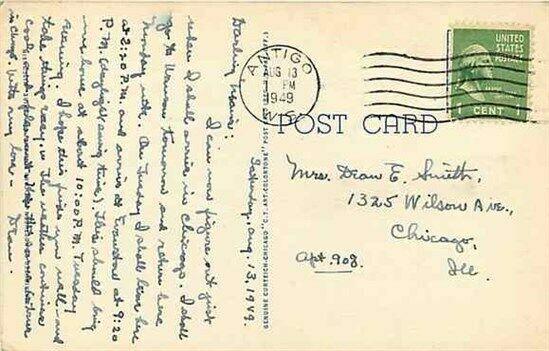 Saturday, Aug. 13, 1949.
Darling Marie:
I can now figure out just
when I shall arrive in Chicago. I shall
go to Vernon tomorrow and return here
Monday nite. On Tuesday I shall leave here
at 2:20 P.M. and arrive at Evanston at 9:20
P.M. (daylight saving time). This should bring
me home at about 10:00 P.M. Tuesday
evening. I hope this finds you well - and
take things easy, in
cool and pleasant
in Chgo. With my love - Dean.
GENUINE CURTEICH-CHICAGO "C.T. ART-COLORTONE" POST CARD
ANTIGO
AUG 13
PM
1949
WIS.
UNITED
STATES
POSTAGE
1 CENT 1
POST CARD
Mrs. Dean E. Smith,
1325 Wilson Ave.,
Chicago,
Ill.
Apt. 908.